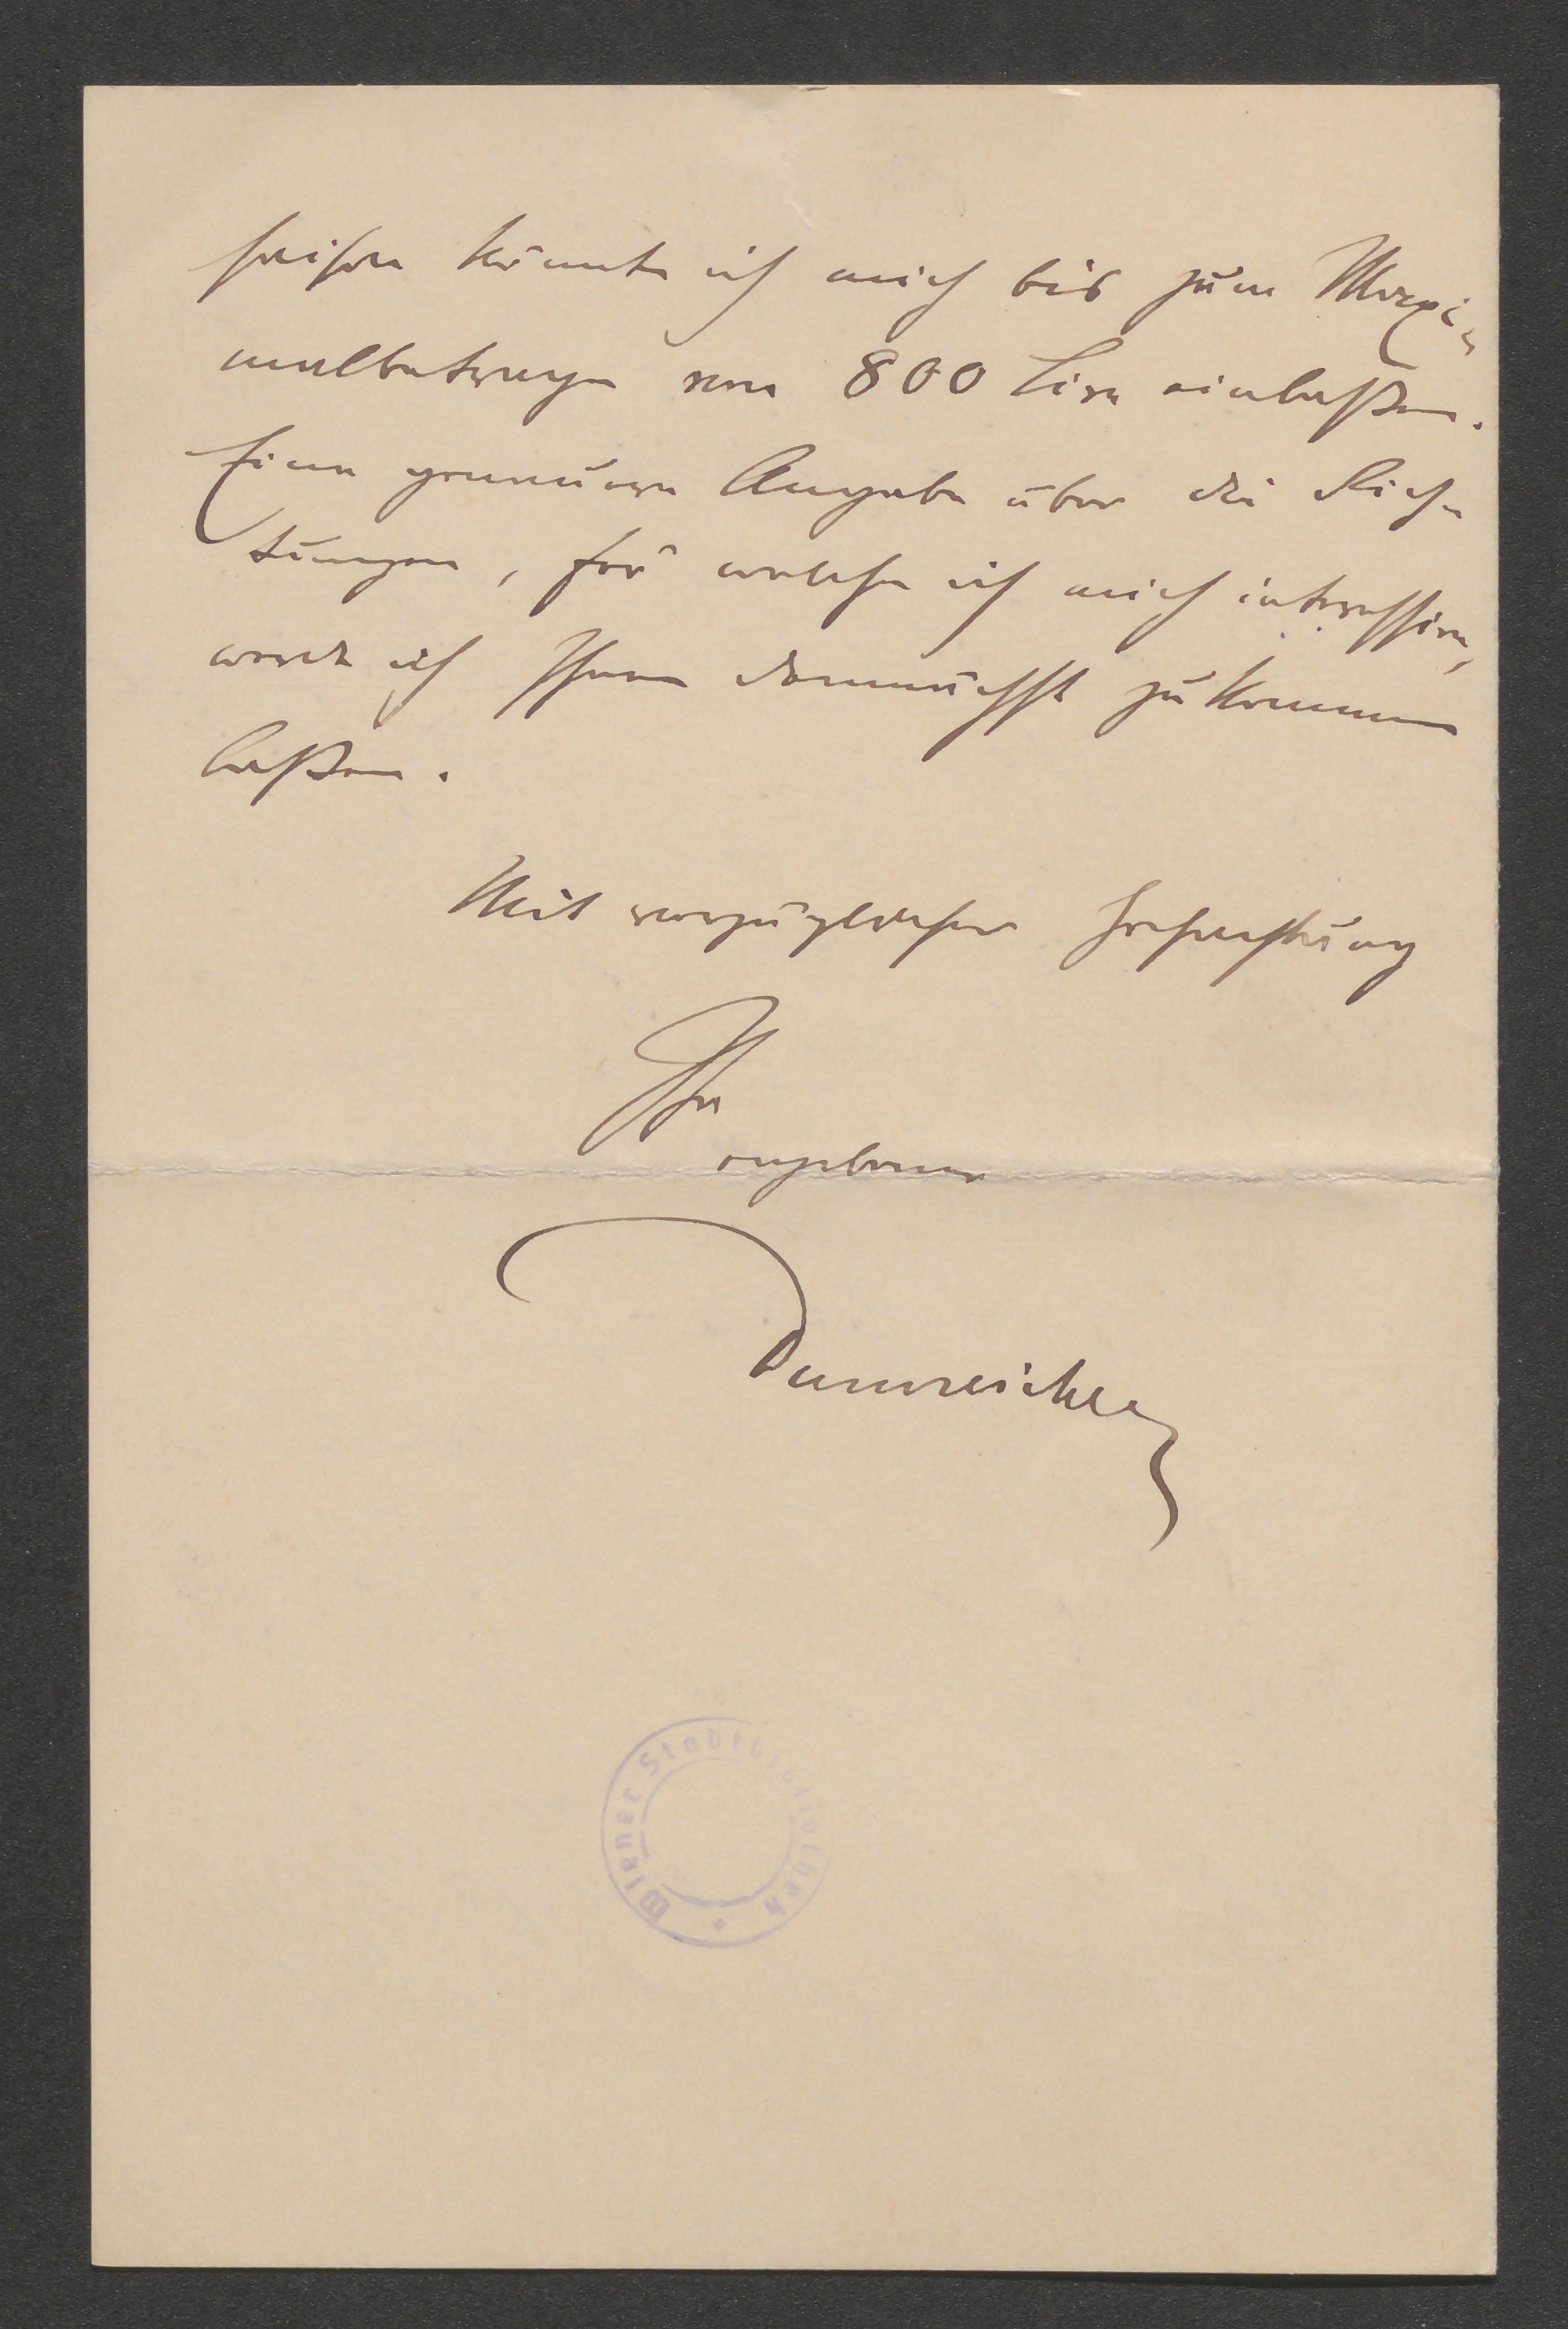 könnte ich mich bis zum Maxi-
malbetrage von 800 Lire einlaßen.
Eine genauere Angabe über die Rich-
tungen, für welche ich mich interessire,
werde ich Ihnen demnächst zukommen
laßen.
Mit vorzüglicher Hochachtung
Ihr
ergebener
Dumreicher
Wiener Stadtbibliothek